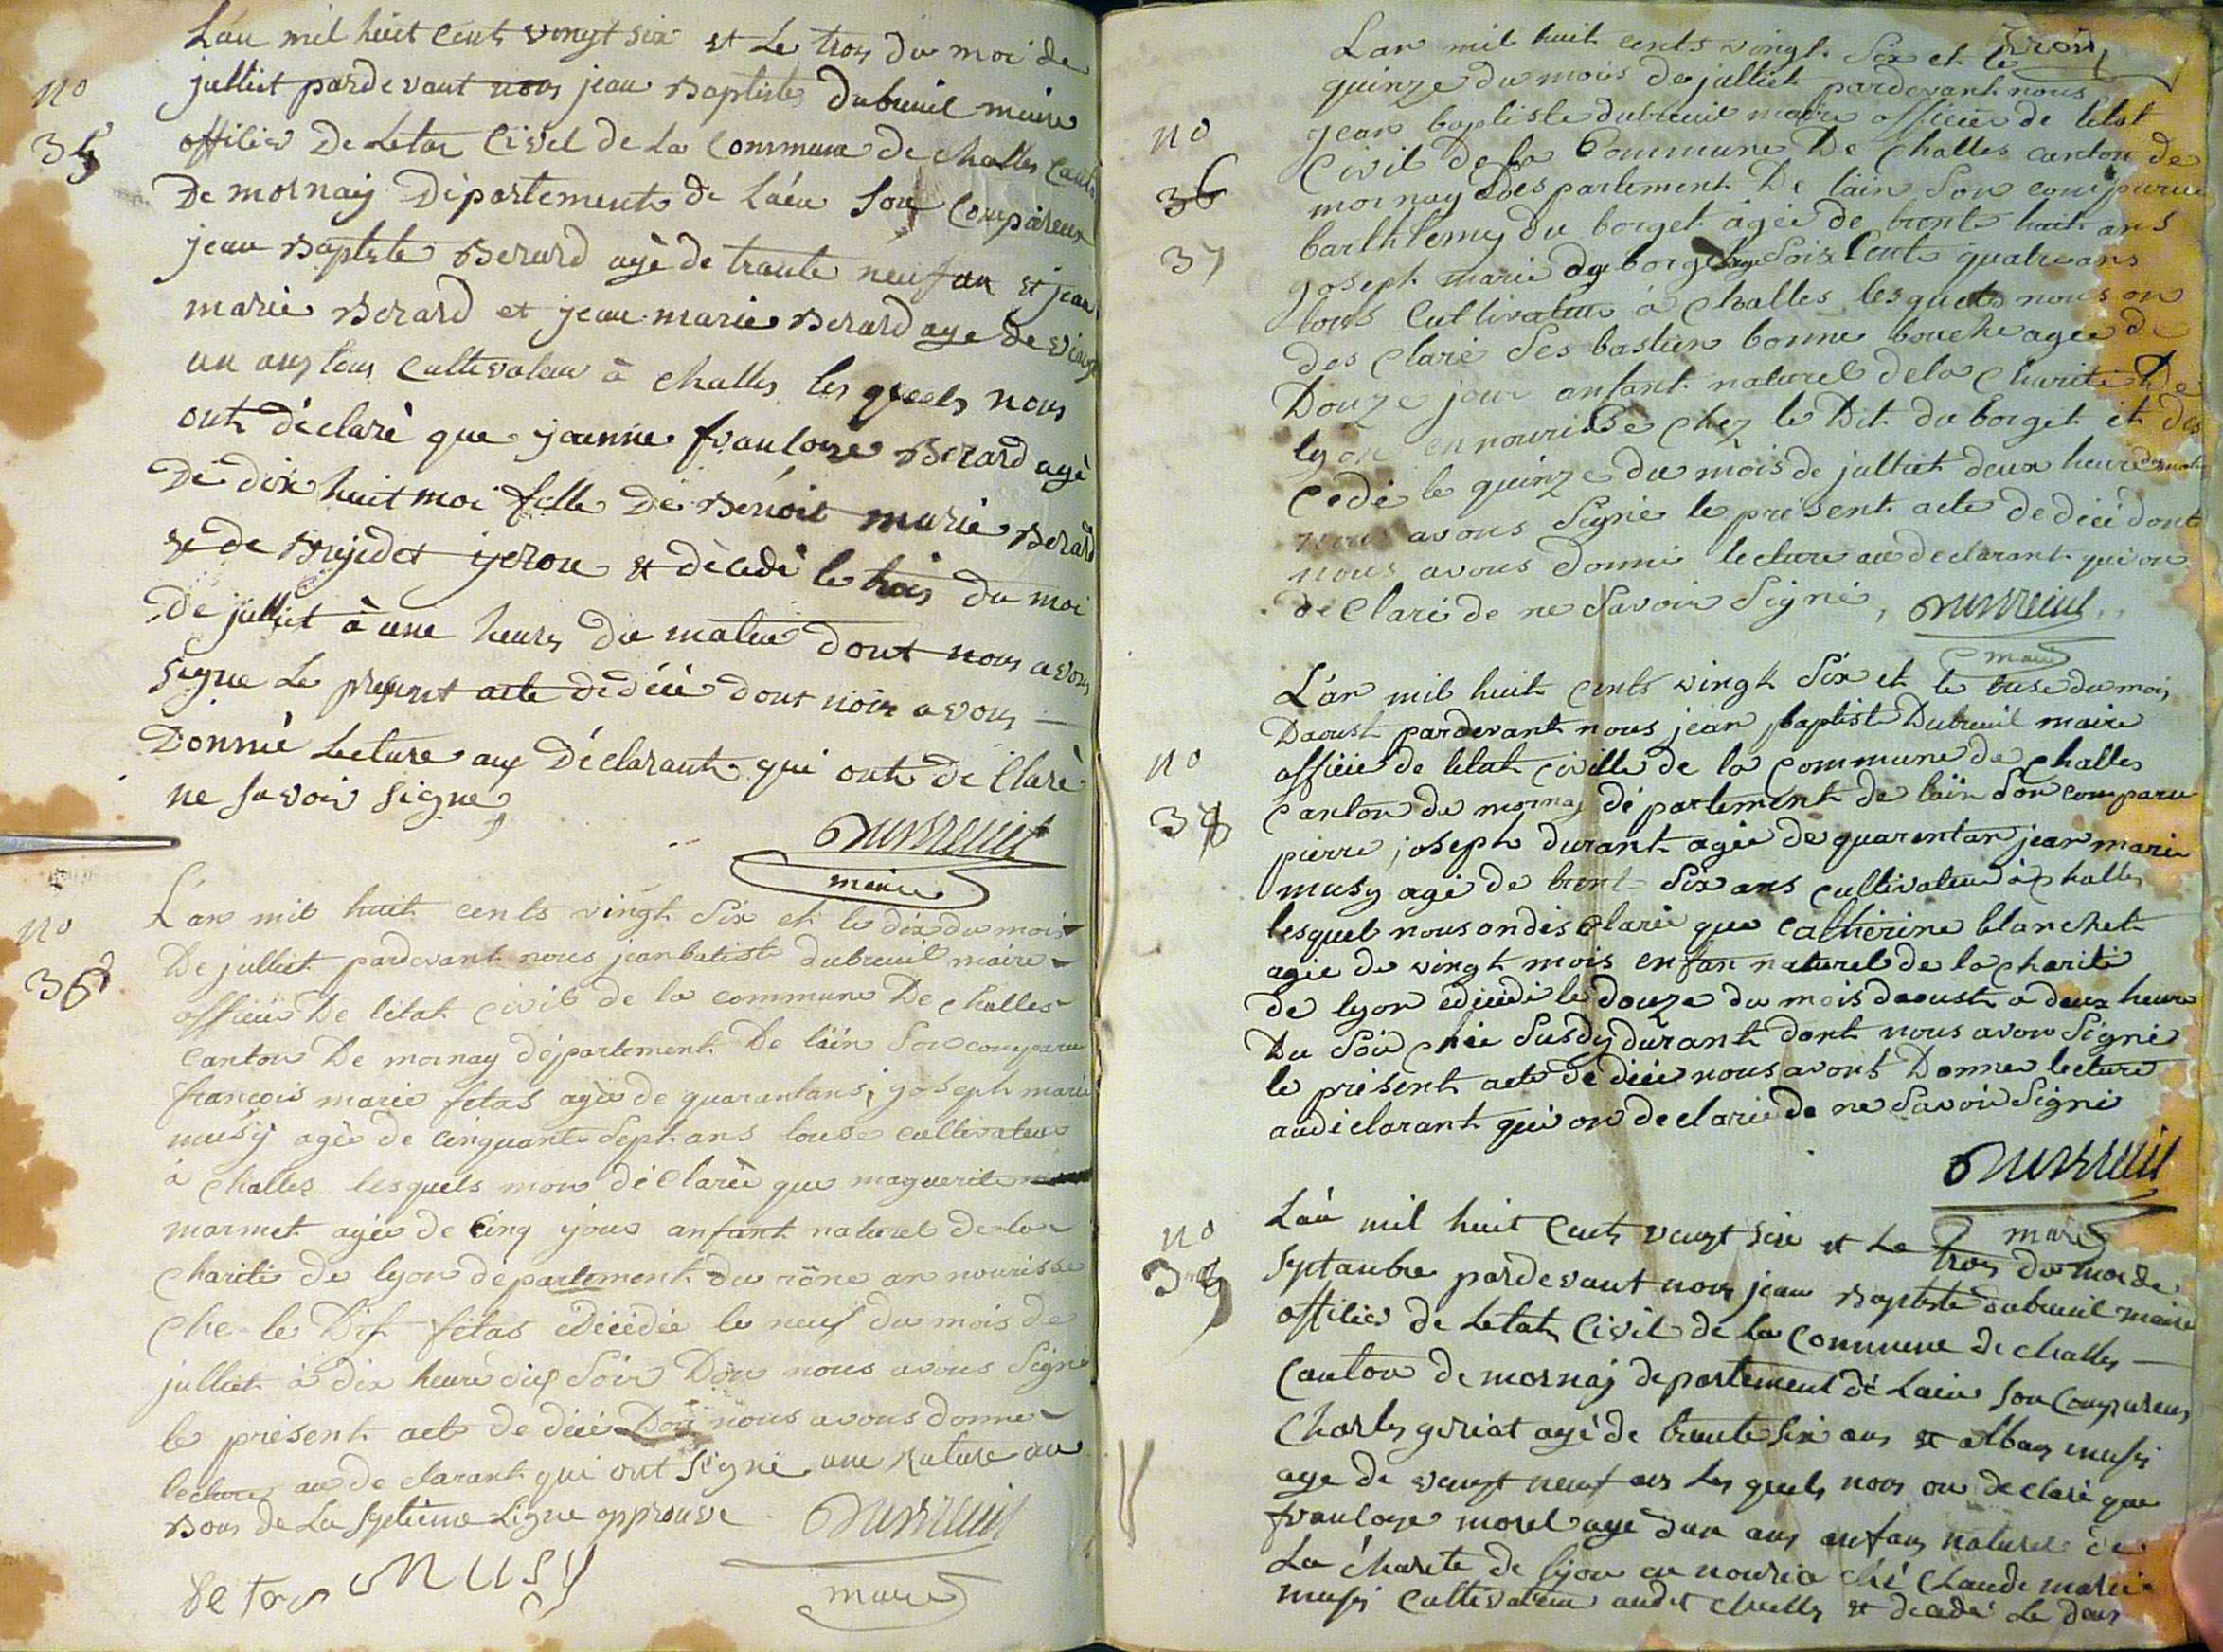 L'an mil huit Cent vingt six et Le trois du moi de
julliet pardevant nous jean Baptiste dubreuil maire
officier De Letat Civil de La Commune de challes Canton
De mornay Département de L'ain Son Compareux
jean Baptiste Berard agè de trante neuf an et jean
marie Berard et jean marie Berard age de vingt
un ans tous Cultivateur à challes les quels nous
ont déclarè que jeanne francoise Berard agè
De dix huit moi fille De Benoit marie Berard
et de Brijedet yeron et dècedè le trois du moi
De julliet à une heurs du matin dont nous avons
signe Le present acte dedécè dont nous avons
Donnè Lecture aux Déclarant qui ont dè Clarè
ne savoir signe
Dubreuil
maire
no
35
L'an mil huit cents vingt Six et le dix du mois
De julliet pardevant nous jean batiste dubreuil maire
officier De l'état civil de la commune De challes
canton De mornay département De l'ain Son comparu
francois marie fétas agèe de quarantans, joseph marie
musy agèe de cinquante Sept ans touse cultivateur
à challes lesquels mon déClarèe que maguerite
marmet agée de Cinq jour anfant naturel de la
charité de lyon département du rône an nourisse
che le Dit fétas édécédée le neuf du mois de
julliet à dix heure dus Soir Don nous avons Signé
le présent acte de décé Don nous avons donne
lecture au de clarant qui ont signé une rature au
Bous de La septième Ligne approuve
Dubreuil
maire
fetas musy
no
36
trois
L'an mil huit cents vingt Six et le
quinze du mois de julliet pardevant nous
jean baptiste dubreuil maire officier de létat
Civil de la Commune De Challes canton de
mornay des partement De l'ain Son comparue
barthlemy du borget agée de trente huit ans
joseph marie du borget age Soix ente quatre ans
tous Cultivateur à Challes lesquels nous on
des Claré Ses bastien bonne bouche agée de
Douze jour anfant naturel de la Charité De
lyon en nourisse chez le Dit du borget et dés
cedé le quinze du mois de julliet deux heure
nous avons Signé le présent acte de décé dont
nous avons donné lecture au declarant qui on
de Claré de ne Savoir Signé,
Dubreuil
maire
no
36
37
L'an mil huit cents vingt Six et le treise du mois
Daoust pardevant nous jean baptiste Dubreuil maire
officié de létat civille de la commune de challes
canton de mornay département de l'ain Son comparu
pierre joseph durant agée de quarantan jean marie
musy agé de trent Six ans cultivateur à challes
lesquel nous on dés clarée que catherine blanchet
agée de vingt mois enfan naturel de la charité
de lyon édécédé le douze du mois daoust a deux heure
Du Soir chée Susdy durant dont nous avon Signé
le présent acte de décée nous avons Donne lecture
audéclarant qui on declarée de ne Savoir Signé
Dubreuil
maire
no
38
L'an mil huit Cent vingt six et Le trois du moi de
septanbre pardevant nous jean Baptiste dubreuil maire
officier de Letat Civil de La Commune de challes
Canton de mornay département dé Lain Son Compareux
Charles geriat agé de trante six ans et alban musy
age de vingt neuf ans Les quels nous on declaré que
francoise morel agé dun ans anfans naturel de
La charite de lyon en nourice ché Claude marie
musy Cultivateur audit challes et décédé Le deux
no
39